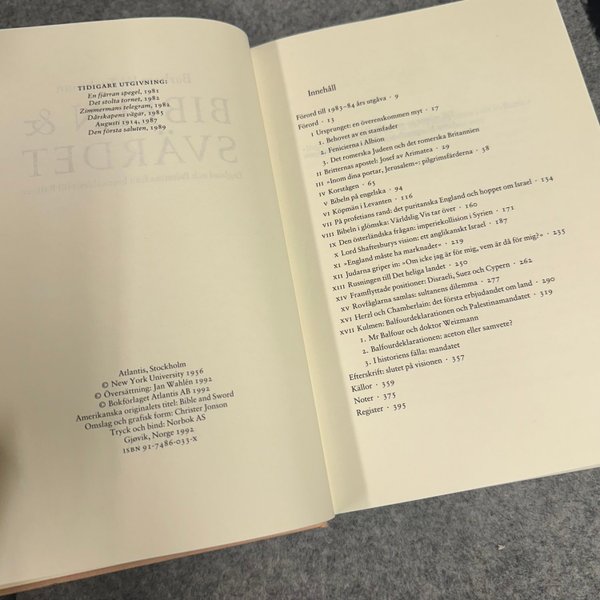 TIDIGARE UTGIVNING:
En fjärran spegel, 1981
Det stolta tornet, 1982
Zimmermans telegram, 1982
Dårskapens vägar, 1985
Augusti 1914, 1987
Den första saluten, 1989
BIBELN &
SVÄRDET
Atlantis, Stockholm
© New York University 1956
© Översättning: Jan Wahlén 1992
© Bokförlaget Atlantis AB 1992
Amerikanska originalets titel: Bible and Sword
Omslag och grafisk form: Christer Jonson
Tryck och bind: Norbok AS
Gjøvik, Norge 1992
ISBN 91-7486-033-X
Innehåll
Förord till 1983–84 års utgåva · 9
Förord · 13
I Ursprunget: en överenskommen myt · 17
1. Behovet av en stamfader
2. Fenicierna i Albion
3. Det romerska Judeen och det romerska Britannien
II Britternas apostel: Josef av Arimatea · 29
III »Inom dina portar, Jerusalem»: pilgrimsfärderna · 38
IV Korstågen · 65
V Bibeln på engelska · 94
VI Köpmän i Levanten · 116
VII På profetians rand: det puritanska England och hoppet om Israel · 134
VIII Bibeln i glömska: Världslig Vis tar över · 160
IX Den österländska frågan: imperiekollision i Syrien · 171
X Lord Shaftesburys vision: ett anglikanskt Israel · 187
XI »England måste ha marknader» · 219
XII Judarna griper in: »Om icke jag är för mig, vem är då för mig?» · 235
XIII Rusningen till Det heliga landet · 250
XIV Framflyttade positioner: Disraeli, Suez och Cypern · 262
XV Rovfåglarna samlas: sultanens dilemma · 277
XVI Herzl och Chamberlain: det första erbjudandet om land · 290
XVII Kulmen: Balfourdeklarationen och Palestinamandatet · 319
1. Mr Balfour och doktor Weizmann
2. Balfourdeklarationen: aceton eller samvete?
3. I historiens fälla: mandatet
Efterskrift: slutet på visionen · 357
Källor · 359
Noter · 375
Register · 395